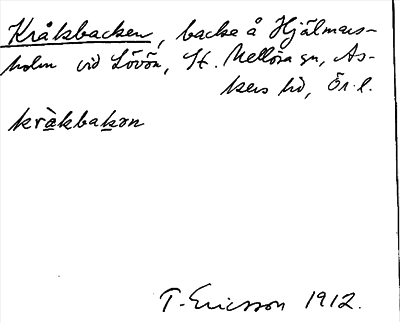 Kråkbacken, backe å Hjälmars-
holm vid Lövön, St. Mellösa sn, As-
kers hd, Ör. l.
kràkbakən
T. Ericsson 1912.